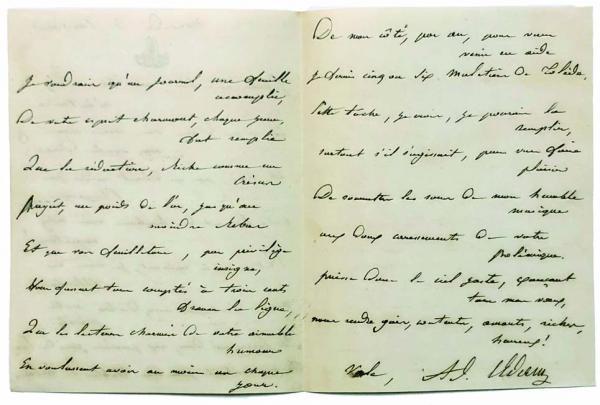 Je voudrais qu'un journal, une feuille
accomplie,
De votre esprit charmant, chaque jour,
fut remplie
Que le rédacteur, riche comme un
Crésus
Payât, au poids de l'or, jusqu'au
moindre Rébus
Et que vos feuilletons, par privilège
insigne,
Vous fussent tous comptés à trois cents
francs la ligne,
Que le lecteur charmé de votre aimable
humour
En voulussent avoir au moins un chaque
jour.
De mon côté, par an, pour vous
venir en aide
Je ferais cinq ou six Muletiers de Tolède.
Cette tache, je crois, je pourrais la
remplir,
surtout s'il s'agissait, pour vous faire
plaisir
De soumettre les sons de mon humble
musique
aux doux accroissements de votre
polémique.
puisse donc le ciel juste, exauçant
tous mes vœux,
nous rendre gais, contents, amants, riches,
heureux!
Vale, Ad.